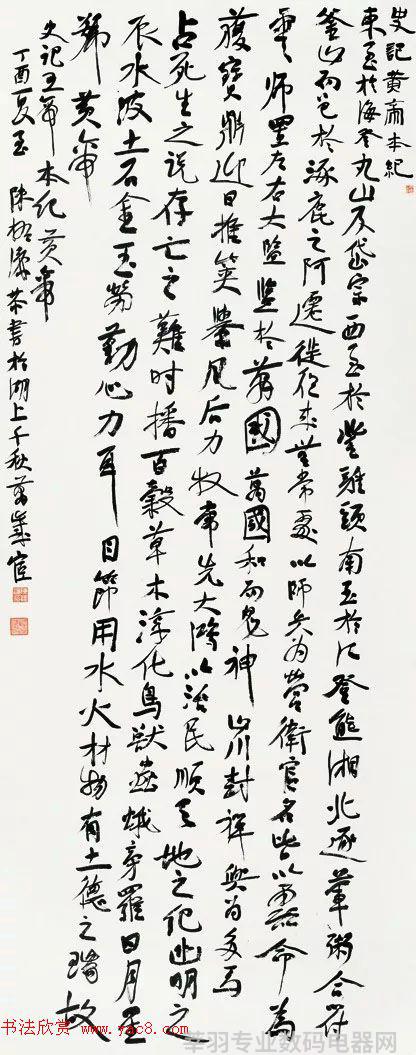 史记黄帝本纪
東至於海登丸山及岱宗西至於空雞頭南至於江登熊湘北逐葷粥合符
釜山而邑於涿鹿之阿遷徙往來無常處以師兵為營衛官名皆以雲命為
雲師置左右大監監於萬國萬國和而鬼神山川封禪與為多焉
獲寶鼎迎日推筴舉風后力牧常先大鴻以治民順天地之紀幽明之
占死生之说存亡之難时播百穀草木淳化鳥獸蟲蛾旁羅日月星
辰水波土石金玉勞勤心力耳目節用水火材物有土德之瑞故
號黄帝
史记五帝本纪黄帝
丁酉夏至 陳 恭書於湖上千秋萬歲宦
书法欣赏 www.yac8.com
华羽专业数码电器网